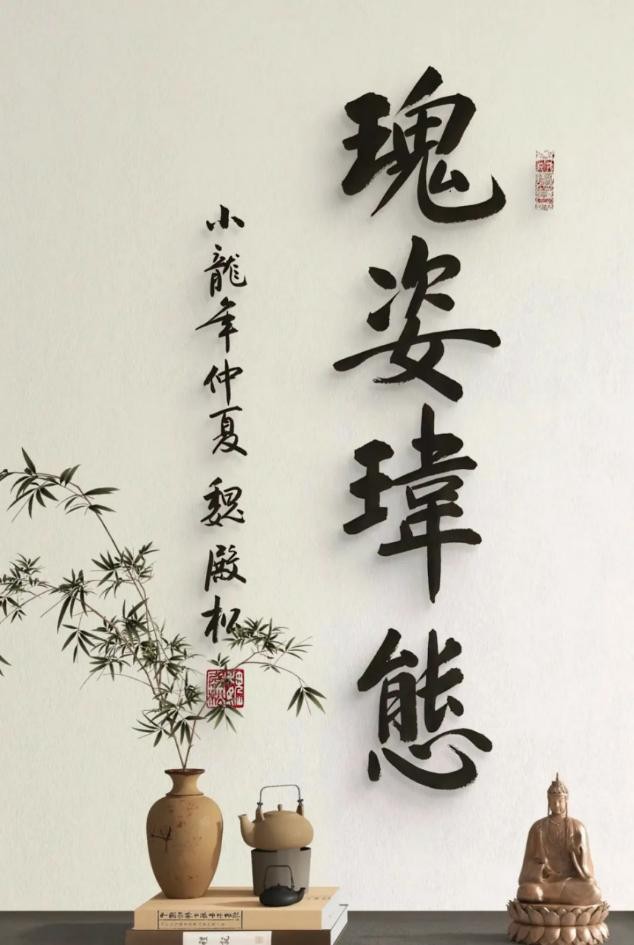 瑰姿瑋態
小龍年仲夏 魏殿松